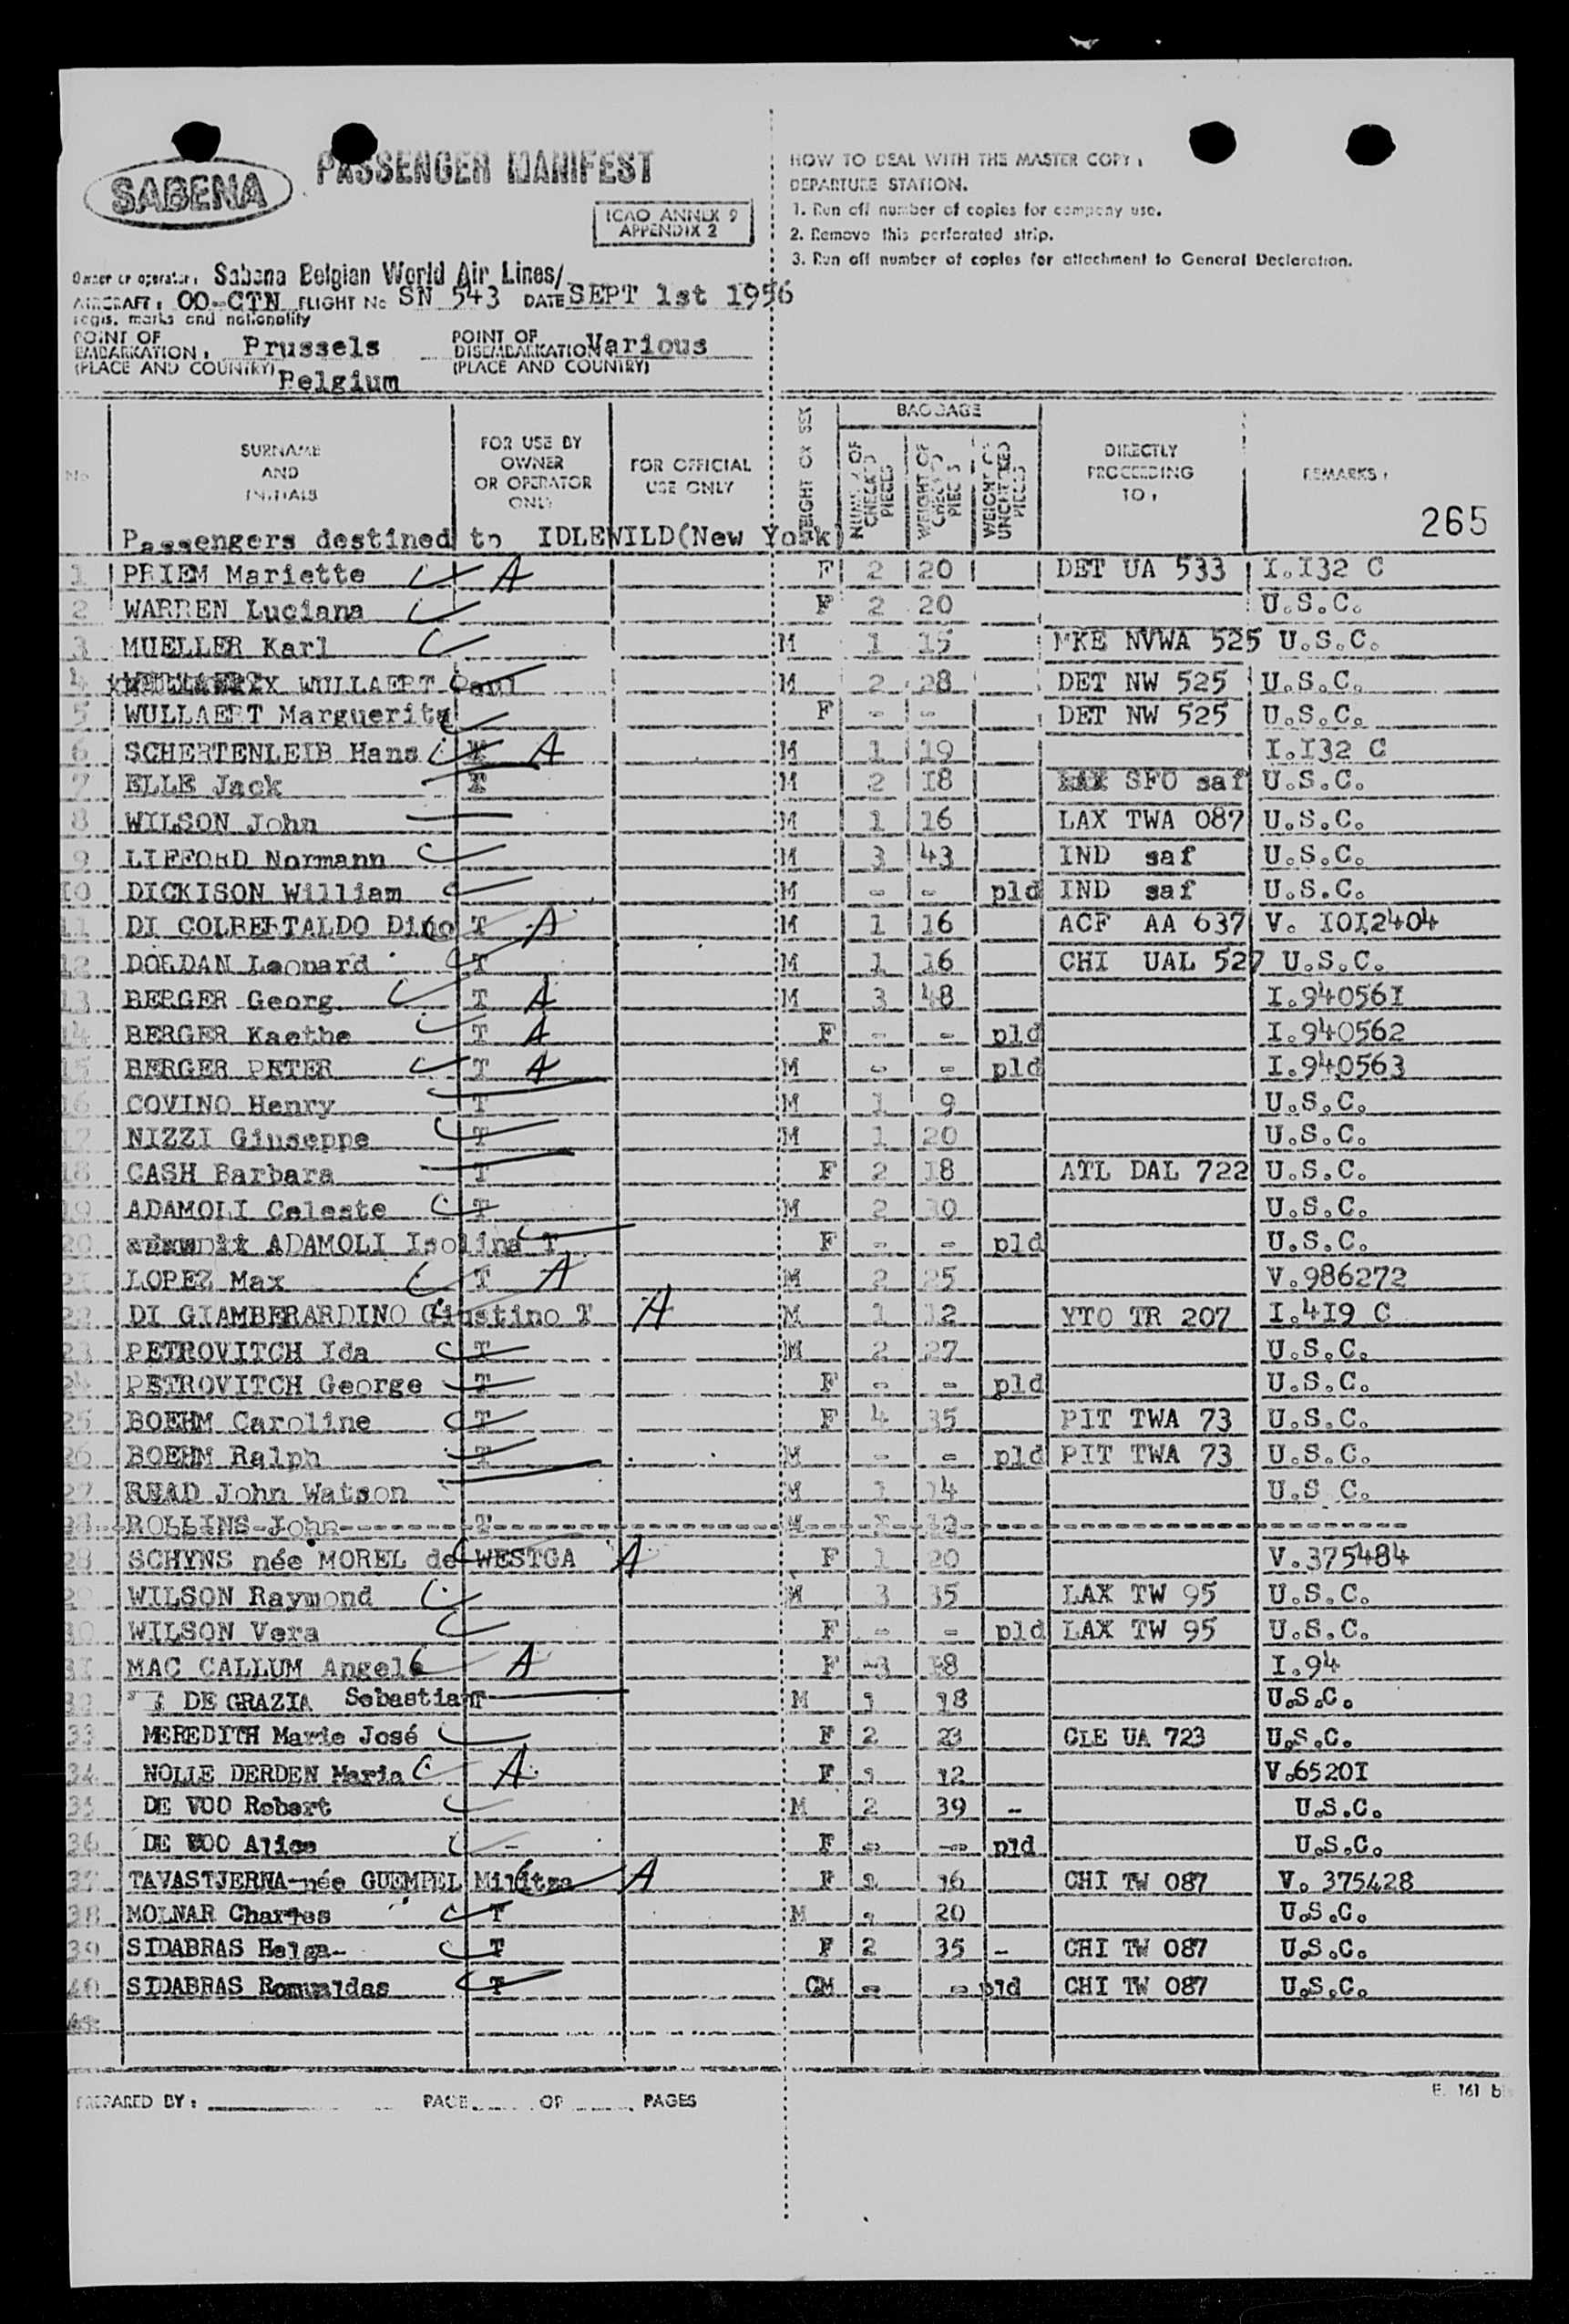 SABENA PASSENGER MANIFEST
ICAO ANNEX 9
APPENDIX 2
HOW TO DEAL WITH THE MASTER COPY :
DEPARTURE STATION.
1. Run off number of copies for company use.
2. Remove this perforated strip.
3. Run off number of copies for attachment to General Declaration.
Owner or operator: Sabena Belgian World Air Lines/
AIRCRAFT: OO-CTN FLIGHT No SN 543 DATE SEPT 1st 1956
regis. marks and nationality
POINT OF EMBARKATION: Prussels
(PLACE AND COUNTRY) Belgium
POINT OF DISEMBARKATION Various
(PLACE AND COUNTRY)
No SURNAME AND INITIALS FOR USE BY OWNER OR OPERATOR ONLY FOR OFFICIAL USE ONLY WEIGHT OR SEX BAGGAGE NUMBER OF CHECKED PIECES WEIGHT OF CHECKED PIECES WEIGHT OF UNCHECKED PIECES DIRECTLY PROCEEDING TO : REMARKS :
265
Passengers destined to IDLEWILD(New York)
1 PRIEM Mariette A F 2 20 DET UA 533 I.I32 C
2 WARREN Luciana F 2 20 U.S.C.
3 MUELLER Karl M 1 15 MKE NVWA 525 U.S.C.
4 WULLAERT Paul M 2 28 DET NW 525 U.S.C.
5 WULLAERT Marguerite F - - DET NW 525 U.S.C.
6 SCHERTENLEIB Hans T A M 1 19 I.I32 C
7 ELLE Jack T M 2 I8 SFO saf U.S.C.
8 WILSON John M 1 16 LAX TWA 087 U.S.C.
9 LIFFORD Normann M 3 43 IND saf U.S.C.
10 DICKISON William M - - pld IND saf U.S.C.
11 DI COLBERTALDO Dino T A M 1 16 ACF AA 637 V. IOI2404
12 DORDAN Leonard T M 1 16 CHI UAL 527 U.S.C.
13 BERGER Georg T A M 3 48 I.94056I
14 BERGER Kaethe T A F - - pld I.940562
15 BERGER PETER T A M - - pld I.940563
16 COVINO Henry T M 1 9 U.S.C.
17 NIZZI Giuseppe T M 1 20 U.S.C.
18 CASH Barbara T F 2 18 ATL DAL 722 U.S.C.
19 ADAMOLI Celeste T M 2 30 U.S.C.
20 ADAMOLI Isolina T F - - pld U.S.C.
21 LOPEZ Max T A M 2 25 V.986272
22 DI GIAMBERARDINO Giustino T A M 1 12 YTO TR 207 I.4I9 C
23 PETROVITCH Ida T M 2 27 U.S.C.
24 PETROVITCH George T F - - pld U.S.C.
25 BOEHM Caroline T F 4 35 PIT TWA 73 U.S.C.
26 BOEHM Ralph T M - - pld PIT TWA 73 U.S.C.
27 READ John Watson M 1 14 U.S C.
28 ROLLINS John T M 1 12
28 SCHYNS née MOREL de WESTGA A F 1 20 V.375484
29 WILSON Raymond M 3 35 LAX TW 95 U.S.C.
30 WILSON Vera F - - pld LAX TW 95 U.S.C.
31 MAC CALLUM Angele A F 3 38 I.94
32 DE GRAZIA Sebastian T M 1 18 U.S.C.
33 MEREDITH Marie José F 2 23 CLE UA 723 U.S.C.
34 NOLLE DERDEN Maria A F 1 12 V.6520I
35 DE VOO Robert M 2 39 - U.S.C.
36 DE VOO Alice - F - - pld U.S.C.
37 TAVASTJERNA-née GUEMPEL Militza A F 1 16 CHI TW 087 V. 375428
38 MOLNAR Charles T M 1 20 U.S.C.
39 SIDABRAS Helga- T F 2 35 - CHI TW 087 U.S.C.
40 SIDABRAS Romualdas T CM - - pld CHI TW 087 U.S.C.
PREPARED BY : PAGE OF PAGES